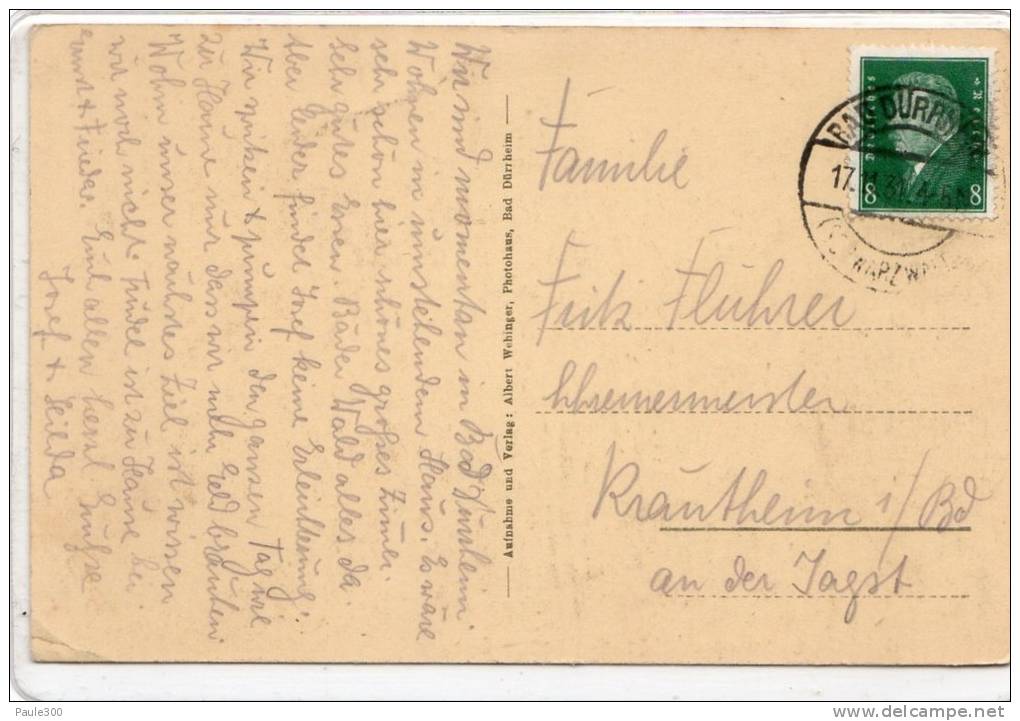 Wir sind momentan in Bad Dürrheim.
Wohnen in umstehendem Haus. Es wäre
sehr schön hier schönes großes Zimmer.
Sehr gutes Essen. Bäder Wald alles da.
Aber leider findet Josef keine Erleichterung.
Wir spucken & pumpen den ganzen Tag wie
zu Hause nur dass wir mehr Geld brauchen.
Wohin unser nächstes Ziel ist wissen
wir noch nicht. Trude ist zu Hause bei
Ernst & Frieda. Euch allen herzl. Grüsse
Josef & Hilda
Aufnahme und Verlag: Albert Wehinger, Photohaus, Bad Dürrheim
8 8
BAD DÜRRH
17.11.31. 4-5 N
(SCHWARZWALD)
Familie
Fritz Flührer
Schreinermeister
Krautheim i/Bd
an der Jagst
Paule300
www.delcampe.net